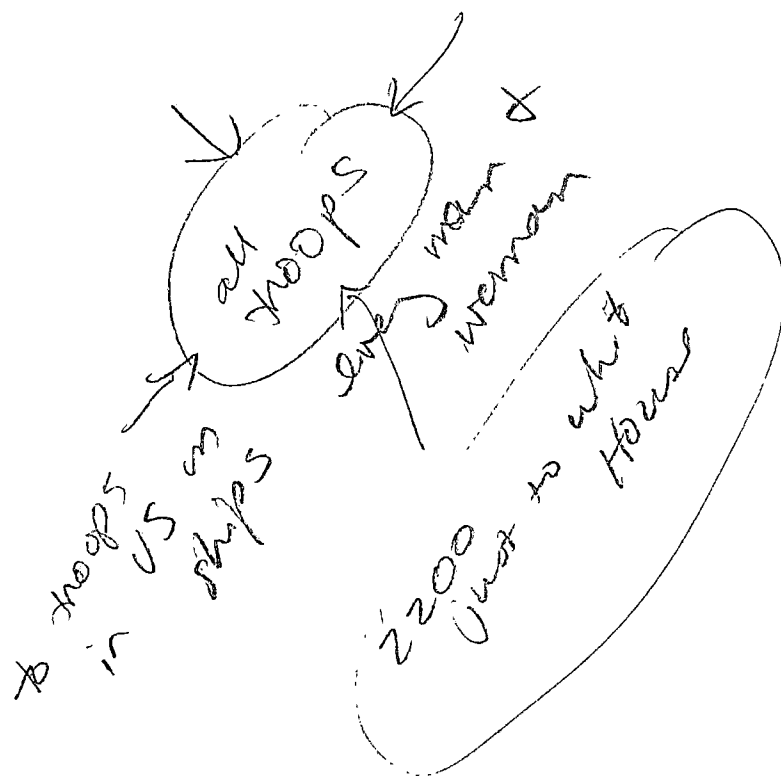 all
troops
every man &
woman
to troops
in US in
ships
2200
just to whit
House